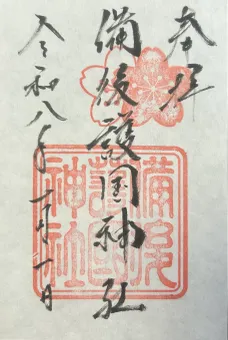 奉拝
備後護国神社
令和八年 月一日
備後
護國
神社